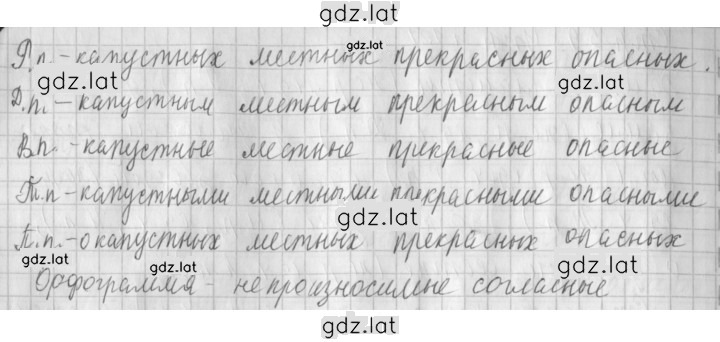 gdz.lat
Р.п. - капустных местных прекрасных опасных.
gdz.lat
gdz.lat gdz.lat
Д.п. - капустным местным прекрасным опасным
В.п. - капустные местные прекрасные опасные
Т.п - капустными местными прекрасными опасными
gdz.lat
П.п. - о капустных местных прекрасных опасных
gdz.lat gdz.lat gdz.lat
Орфограмма - непроизносимые согласные
gdz.lat